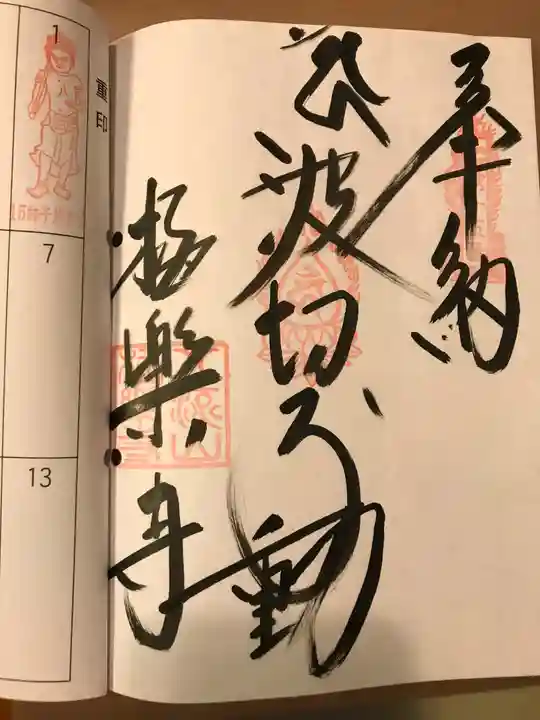 奉納
波切不動
極楽寺
重印
1
7
13